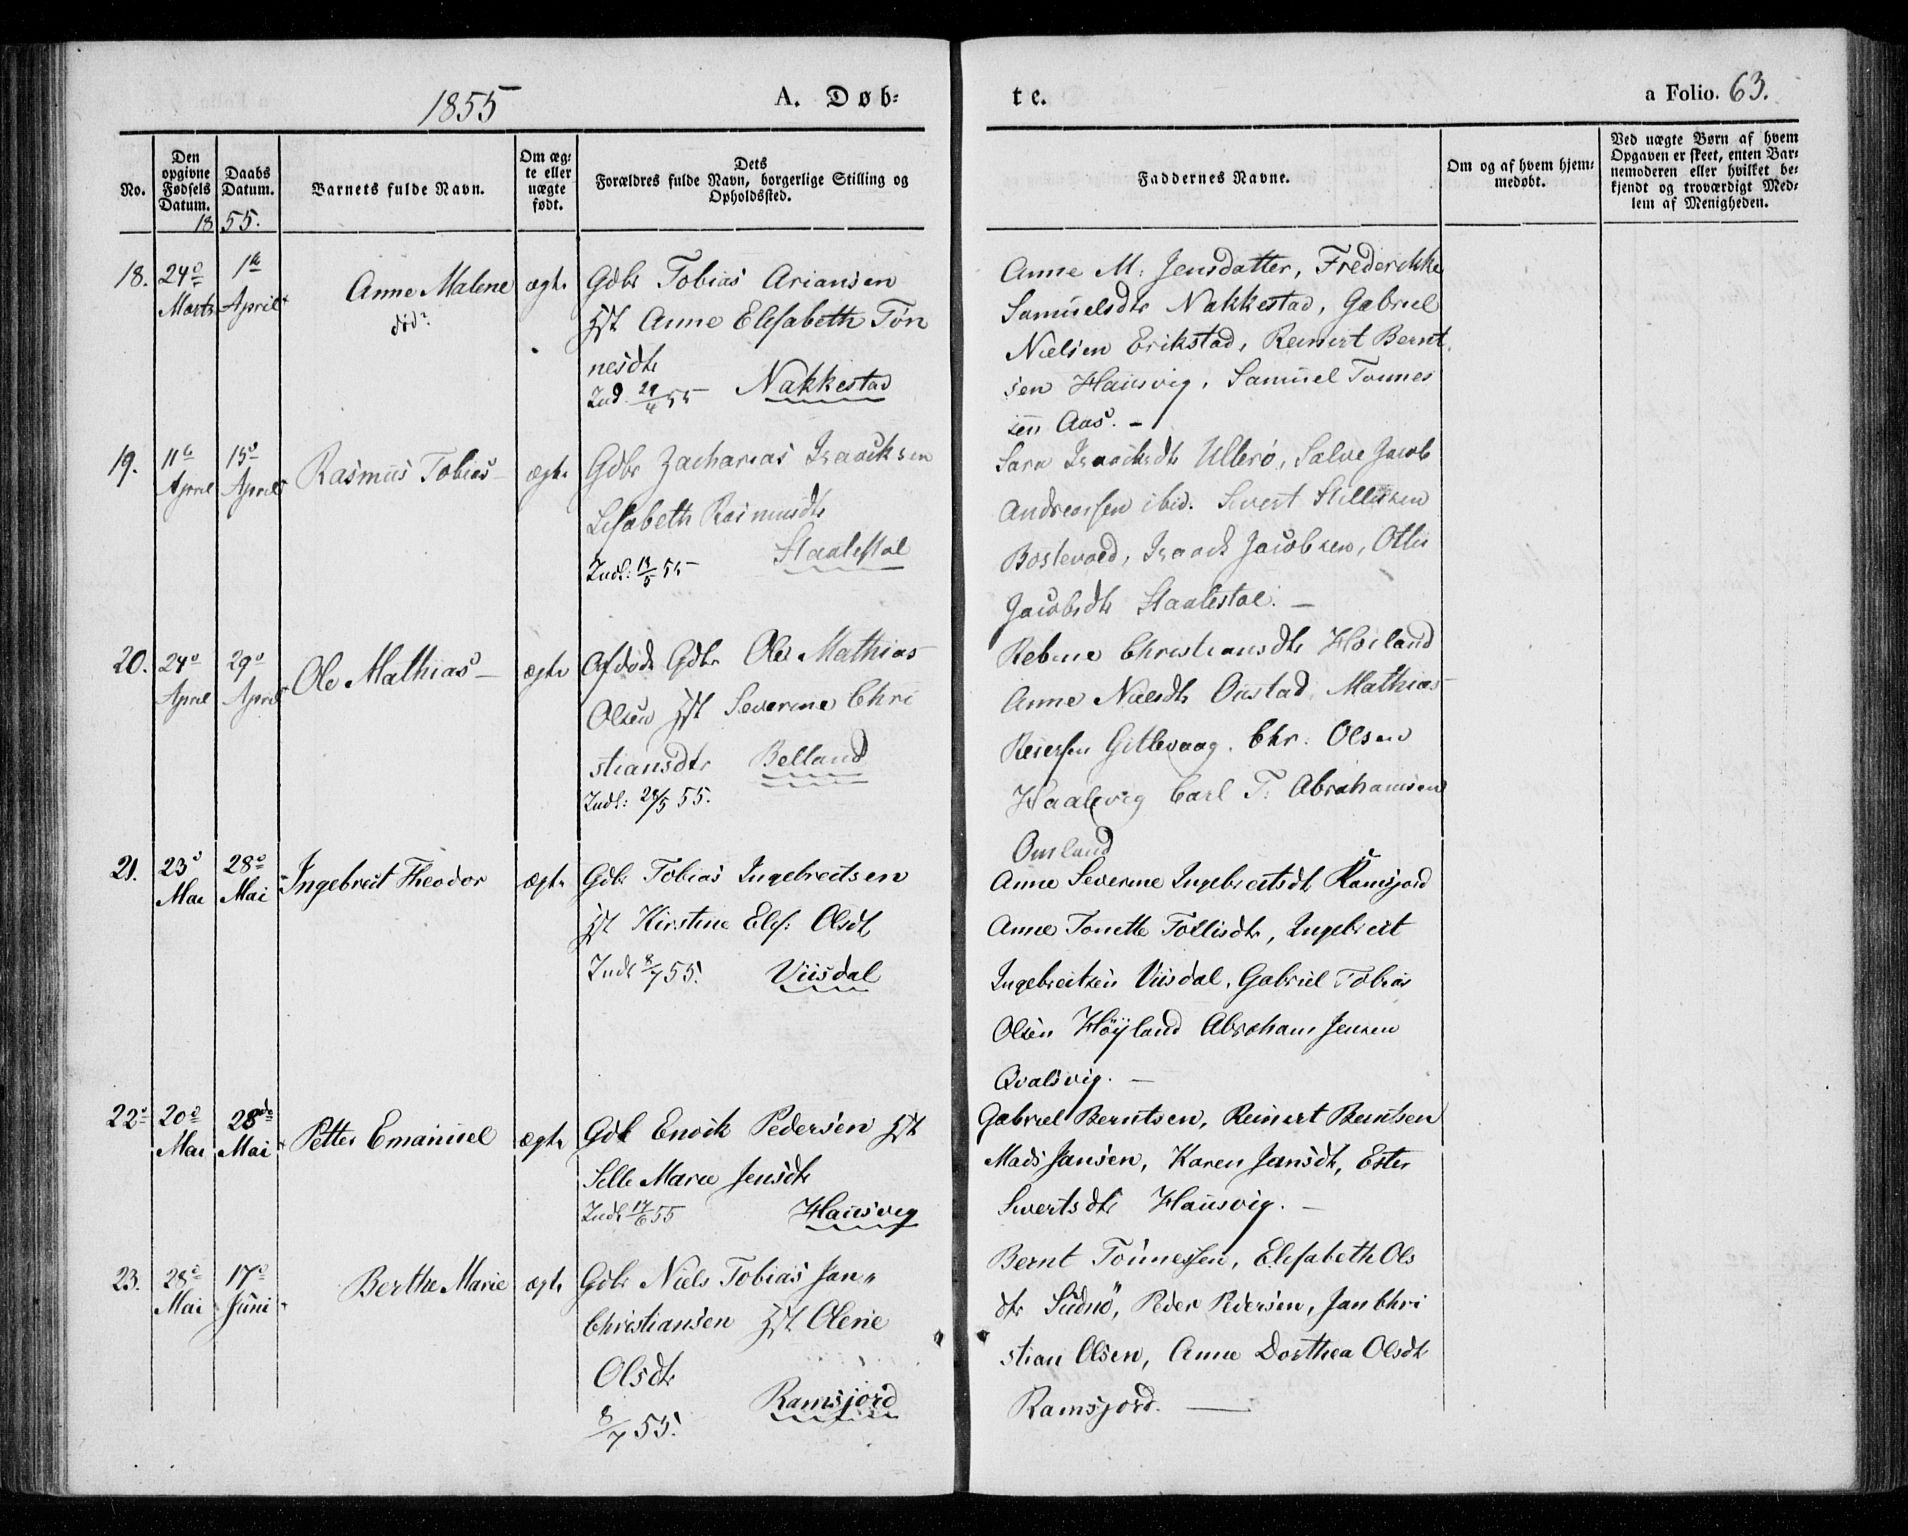 1855
A. Døb-
te.
a Folio. 63.
No.
Den opgivne Fødsels Datum.
Daabs Datum.
Barnets fulde Navn.
Om ægte eller uægte født.
Dets Forældres fulde Navn, borgerlige Stilling og Opholdssted.
Faddernes Navne.
Om og af hvem hjemmedøbt.
Ved uægte Børn af hvem Opgaven er skeet, enten Barnemoderen eller hvilket bekjendt og troværdigt Medlem af Menigheden.
1855.
18. 24de Marts 1te April
Anne Malene
død
ægte
Gdbr Tobias Ariansen
Hst Anne Elisabeth Tøn
nesdtr
Ind 29/4 55 Nakkestad
Anne M: Jensdatter, Frederikke
Samuelsdtr Nakkestad, Gabriel
Nielsen Erikstad, Reinert Bernt
sen Hausvig, Samuel Tønnes
sen Aas. –
19. 11te April 15de April
Rasmus Tobias –
ægte
Gdbr Zacharias Isaacksen
Lisabeth Rasmusdtr
Staalestøl
Indl: 13/5 55
Sara Isaacksdtr Ullerø, Salve Jacob
Andreassen ibid. Sivert
Isaack Jacobsen,
Jacobsdtr Staalestøl. –
20. 24de April 29de April
Ole Mathias –
ægte
Afdøde Gdbr Ole Mathias
Olsen Hst Severine Chri
stiansdtr Belland
Indl: 28/5 55.
Rebine Christiansdtr Høiland
Anne Nielsdtr Oustad, Mathias
Reiersen Gitlevaag. Chr. Olsen
Haalevig Carl T. Abrahamsen
Omland
21. 23de Mai 28de Mai
Ingebreit Theodor
ægte
Gdbr Tobias Ingebreitsen
Hst Kirstine Elis: Olsdtr
Indl 8/7 55. Viisdal
Anne Severine Ingebreitsdtr Ramsjord
Anne Tonette Tollisdtr, Ingebreit
Ingebreitsen Viisdal, Gabriel Tobias
Olsen Høyland Abraham Jensen
Qvalsvig. –
22. 20de Mai 28de Mai
Petter Emanuel
ægte
Gdbr Enock Pedersen Hst
Sille Marie Jensdtr
Indl 17/6 55 Hausvig
Gabriel Berntsen, Reinert Berntsen
Mads Jansen, Karen Jensdtr, Ester
Sivertsdtr Hausvig. –
23. 28de Mai 17de Juni
Berthe Marie
ægte
Gdbr Niels Tobias Jan-
Christiansen Hst Olene
Olsdtr
8/7 55. Ramsjord
Bernt Tønnessen, Elisabeth Ols
dtr Sudnø, Peder Pedersen, Jan Chri
stian Olsen, Anne Dorthea Olsdtr
Ramsjord. —